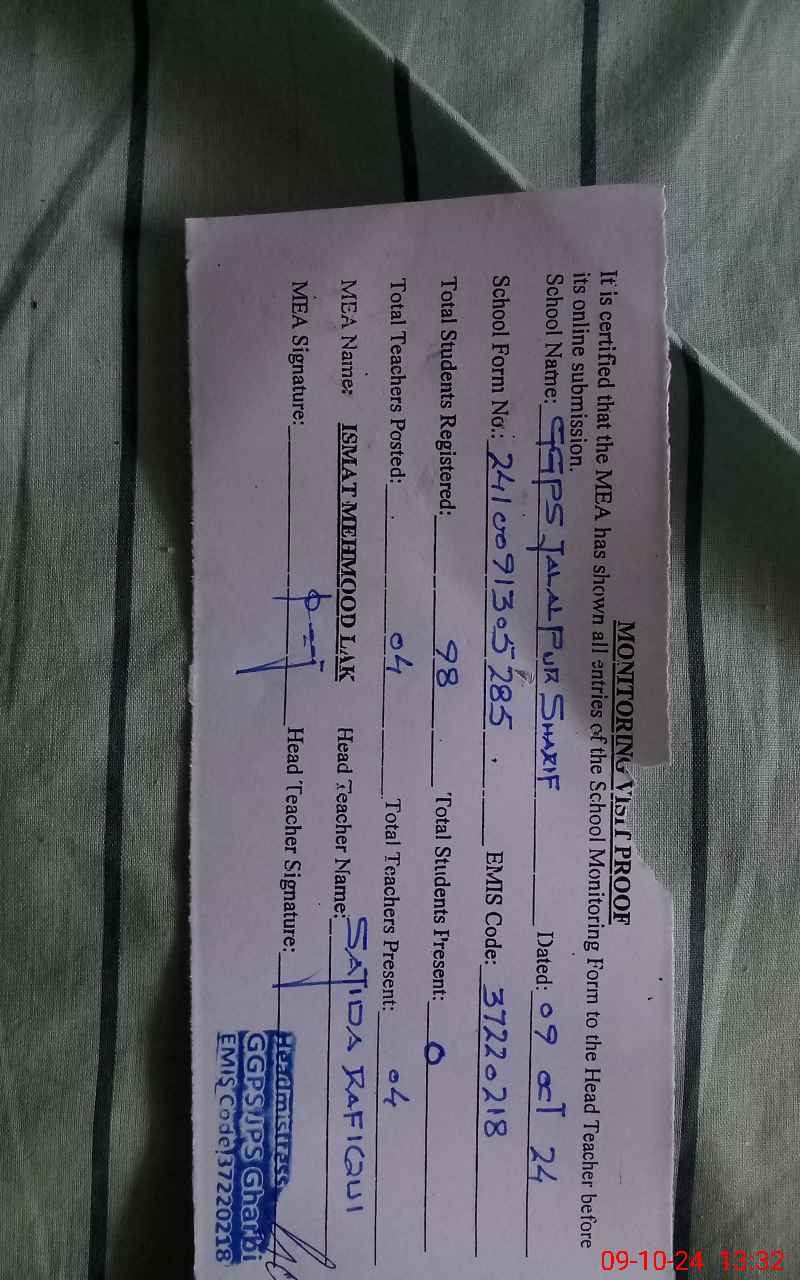 MONITORING VISIT PROOF
It is certified that the MEA has shown all entries of the School Monitoring Form to the Head Teacher before
its online submission.
School Name: GGPS JALALPUR SHARIF Dated: 09 OCT 24
School Form No.: 2410091305285 EMIS Code: 37220218
Total Students Registered: 98 Total Students Present: 0
Total Teachers Posted: 04 Total Teachers Present: 04
MEA Name: ISMAT MEHMOOD LAK Head Teacher Name: SAJIDA RAFIQUI
MEA Signature: Head Teacher Signature:
Headmistress
GGPS/JPS Gharbi
EMIS Code 37220218
09-10-24 13:32